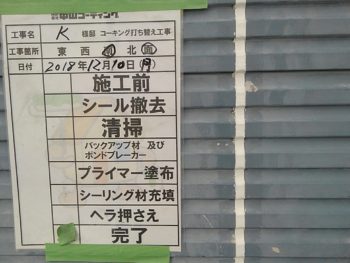 ㈱中山コーティング
工事名 K 様邸 コーキング打ち替え工事
工事箇所 東 西 南 北 面
日付 2018年12月10日(月)
施工前
シール撤去
清掃
バックアップ材 及び
ボンドブレーカー
プライマー塗布
シーリング材充填
ヘラ押さえ
完了